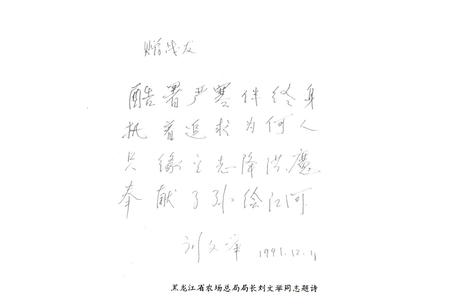 赠战友
酷署严寒伴终身
执着追求为何人
只缘立志降洪魔
奉献子孙绘江河
刘文举 1991.12.11
黑龙江省农场总局局长刘文举同志题诗